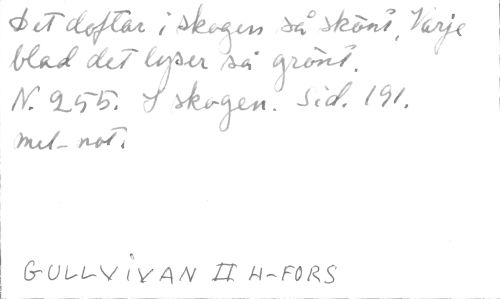 Det doftar i skogen så skönt, Varje
blad det lyser så grönt.
N. 255. I skogen. Sid. 191.
mel-not.
GULLVIVAN II H-FORS